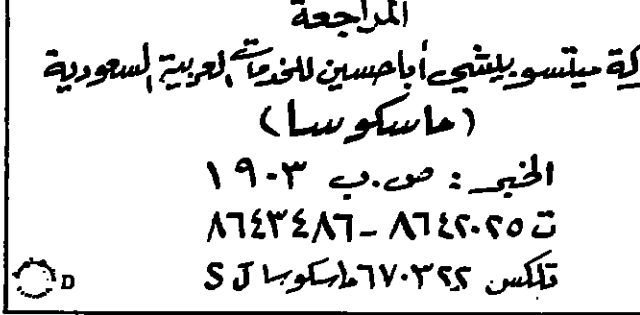 المراجعة
كة ميتسوبيشي أباحسين للخدمات العربية السعودية
(ماسكوسا)
الخبر : ص.ب ١٩٠٣
ت ٨٦٤٢٠٢٥ - ٨٦٤٣٤٨٦
تلكس ٦٧٠٣٢٢ ماسكوسا S J
D